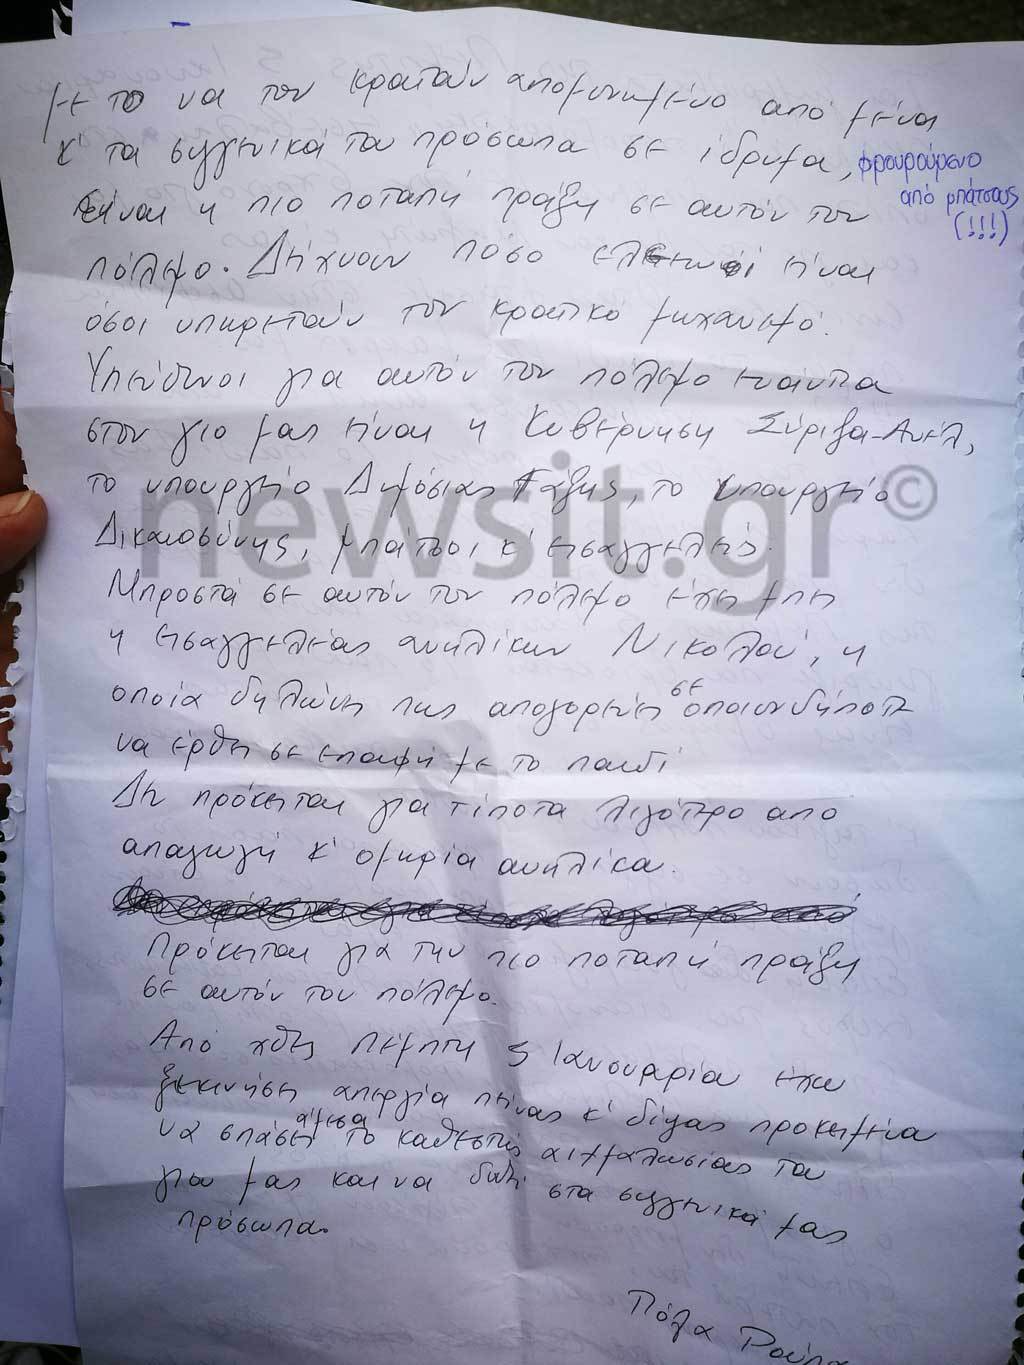 με το να τον κρατούν απομονωμένο από μένα
κ' τα συγγενικά του πρόσωπα σε ίδρυμα, φρουρούμενο
από μπάτσους
(!!!)
είναι η πιο ποταπή πράξη σε αυτόν τον
πόλεμο. Δείχνουν πόσο ελεεινοί είναι
όσοι υπηρετούν τον κρατικό μηχανισμό.
Υπεύθυνοι για αυτόν τον πόλεμο ενάντια
στον γιο μας είναι η Κυβέρνηση Σύριζα-Ανέλ,
το υπουργείο Δημόσιας Τάξης, το υπουργείο
Δικαιοσύνης, μπάτσοι κ' εισαγγελείς.
newsit.gr©
Μπροστά σε αυτόν τον πόλεμο έχει μπει
η εισαγγελέας ανηλίκων Νικολού, η
οποία δηλώνει πως απαγορεύει σε οποιονδήποτε
να έρθει σε επαφή με το παιδί
Δεν πρόκειται για τίποτα λιγότερο απο
απαγωγή κ' ομηρία ανηλίκα.
Πρόκειται για την πιο ποταπή πράξη
σε αυτόν τον πόλεμο.
Από χθες Πέμπτη 5 Ιανουαρίου έχω
ξεκινήσει απεργία πείνας κ' δίψας προκειμένου
να σπάσει άμεσα το καθεστώς αιχμαλωσίας του
γιου μας και να δοθεί στα συγγενικά μας
πρόσωπα.
Πόλα Ρούπα